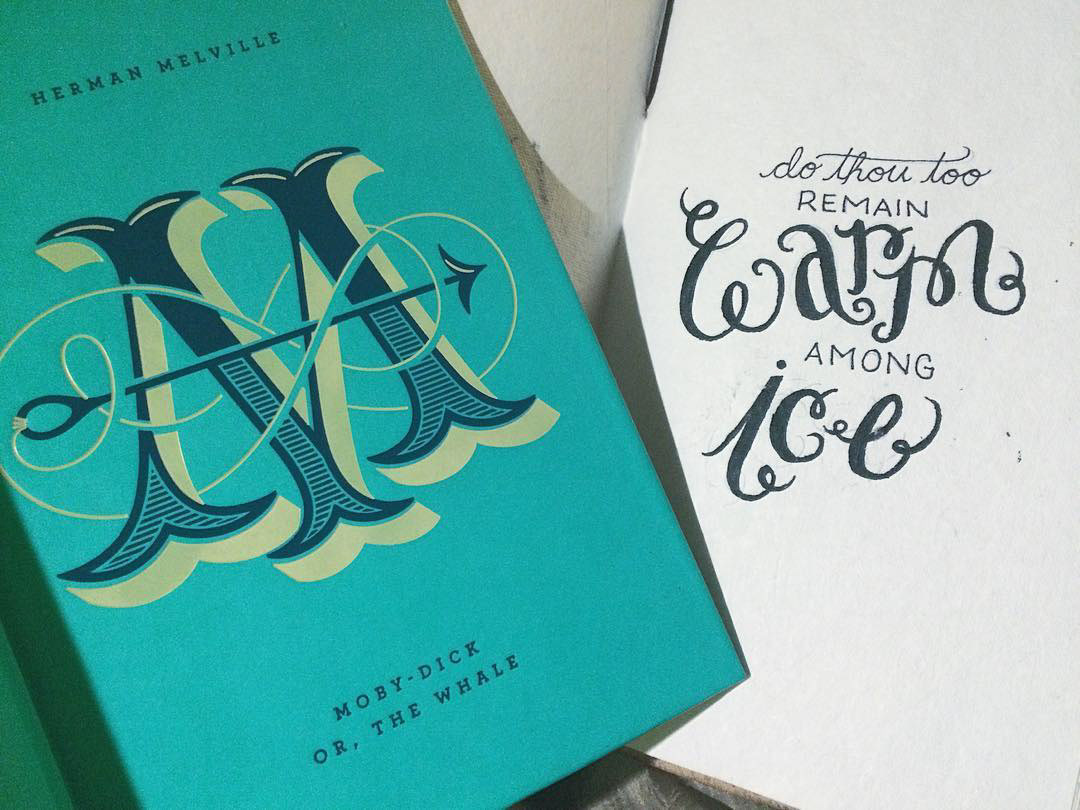 HERMAN MELVILLE
M
MOBY-DICK
OR, THE WHALE
do thou too
REMAIN
warm
AMONG
ice